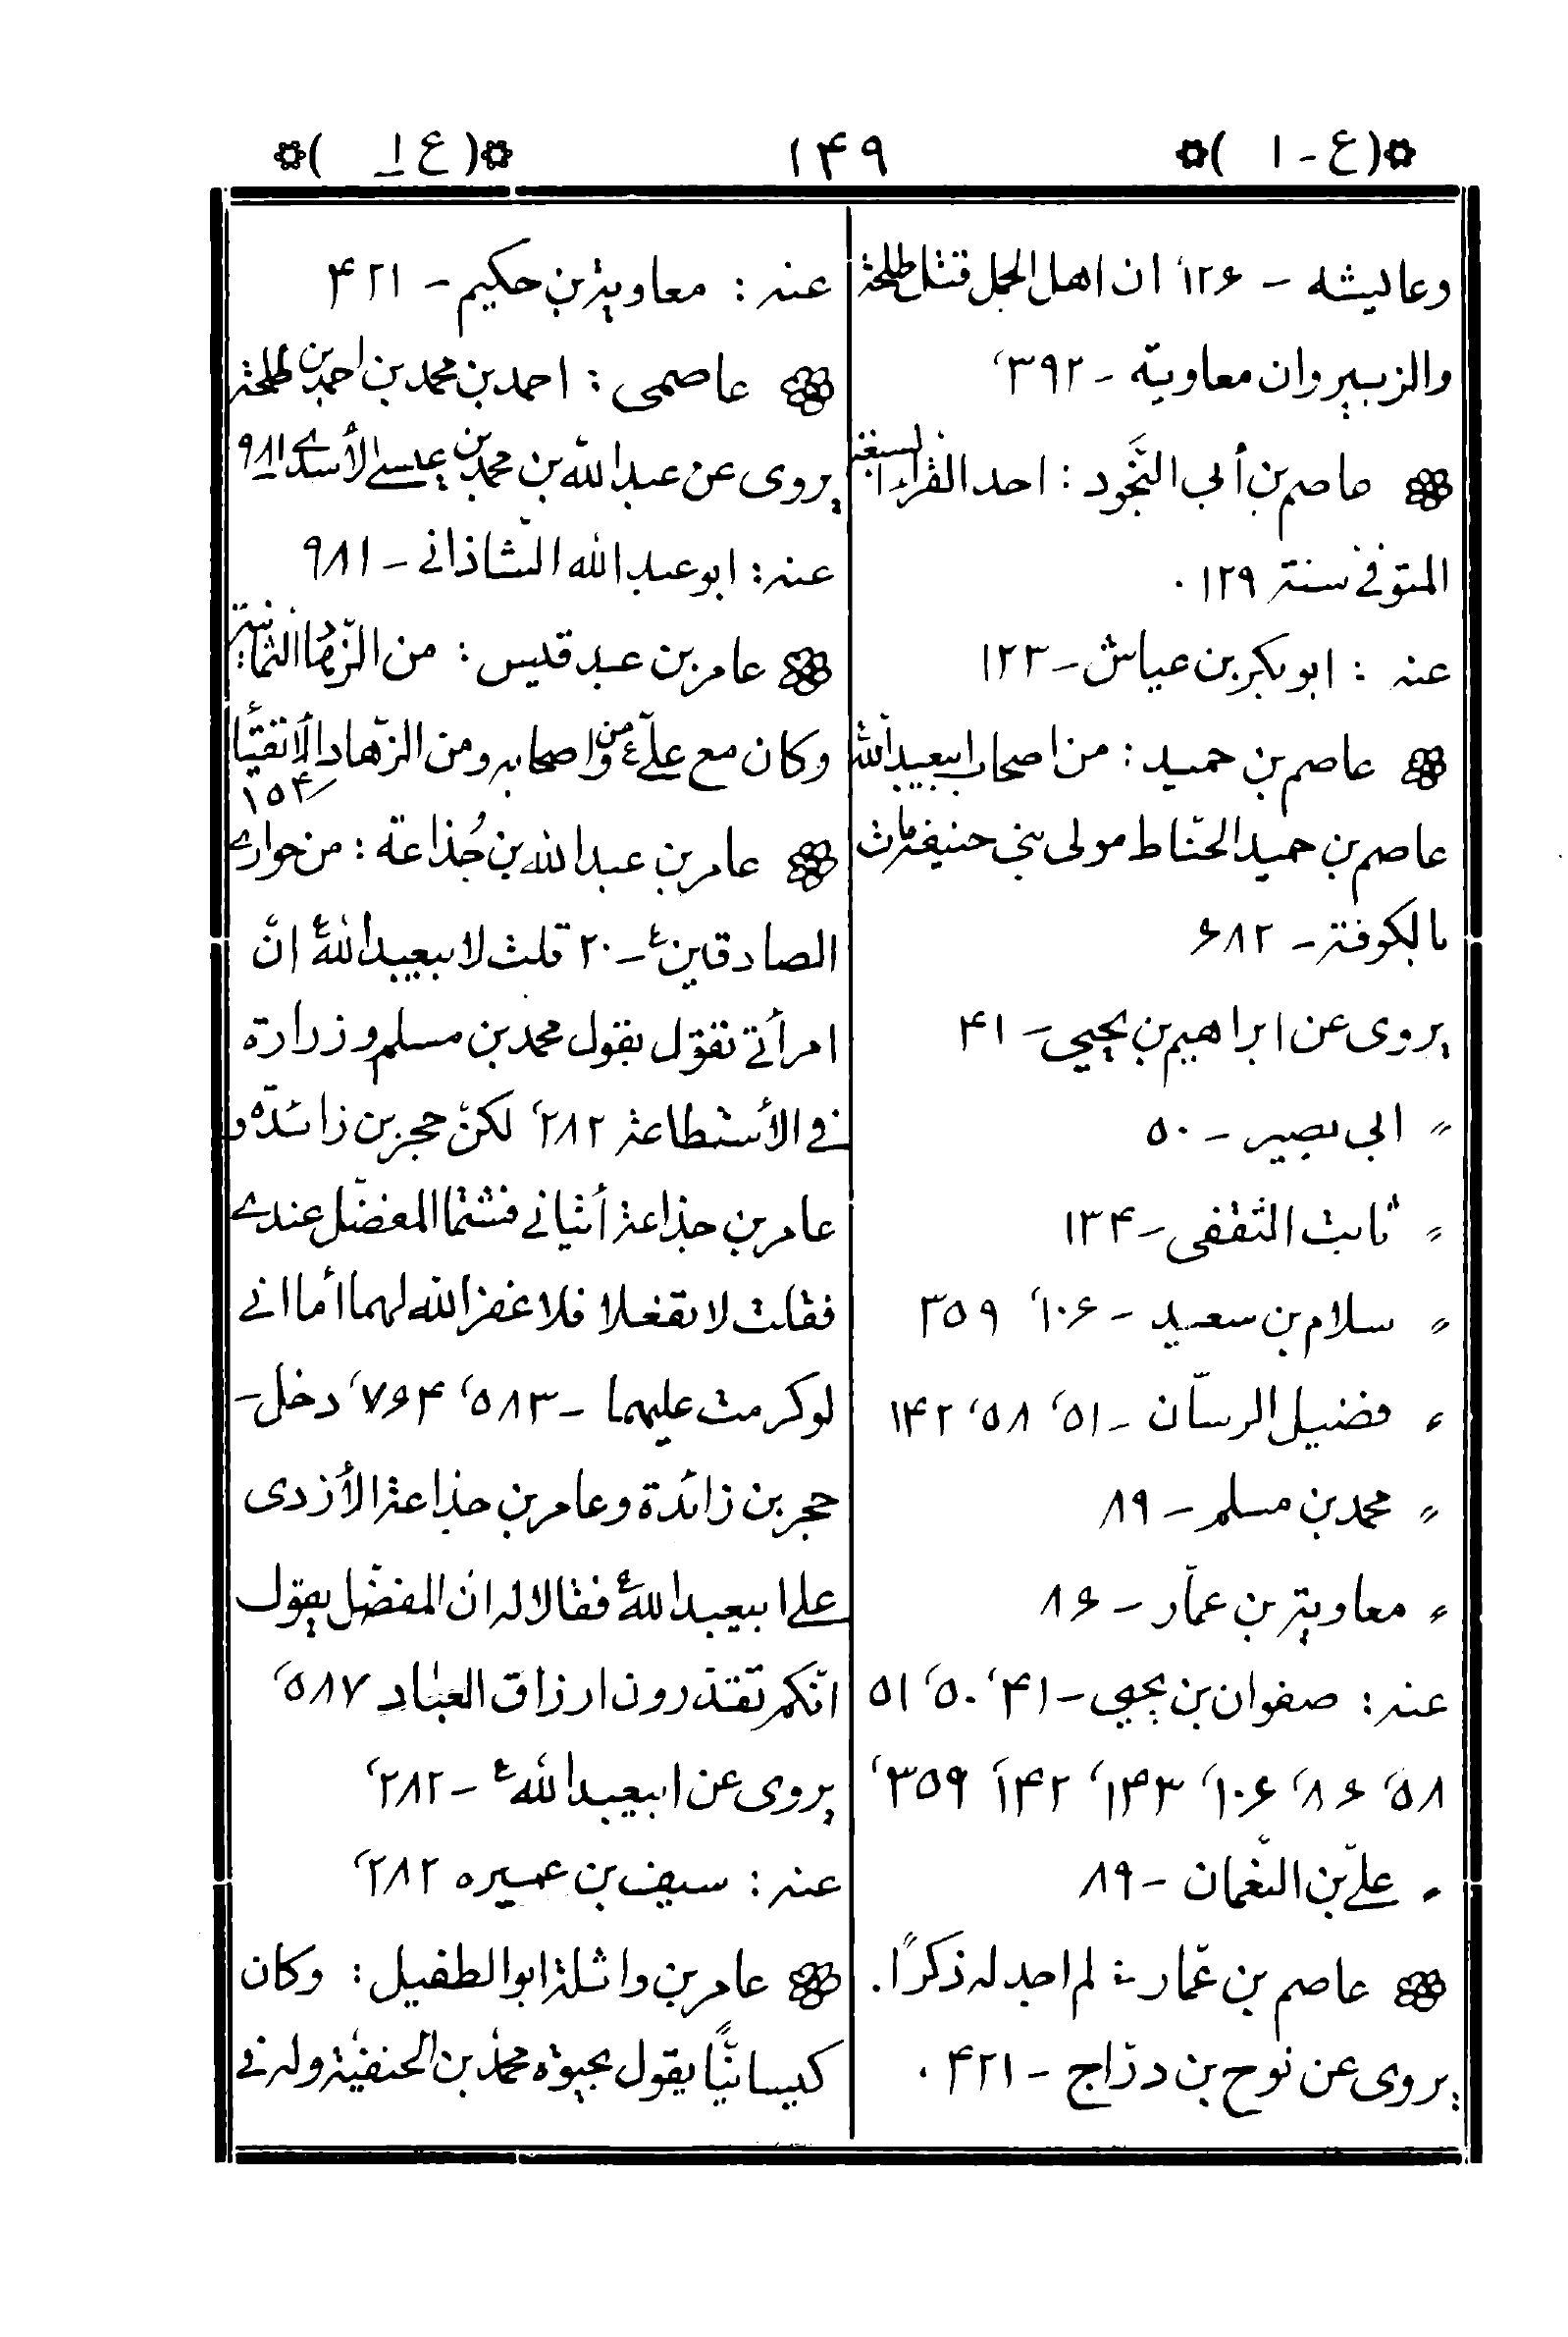 (ع - ا) ۱۴۹ (ع ا)
وعايشه - ۱۲۶، ان اهل الجمل قتل طلحة
والزبير وان معاوية - ۳۹۲،
عاصم بن أبي النَّجود : احد القراء السبعة
المتوفى سنة ۱۲۹.
عنه : ابوبكر بن عياش - ۱۲۳
عاصم بن حميد : من اصحاب ابيعبد الله
عاصم بن حميد الحنّاط مولى بني حنيفة مات
بالكوفة - ۶۸۲
يروى عن ابراهيم بن يحيي - ۴۱
〃 ابى بصير - ۵۰
〃 ثابت الثقفى - ۱۳۴
〃 سلام بن سعيد - ۱۰۶، ۳۵۹
〃 فضيل الرسّان - ۵۱، ۵۸، ۱۴۲
〃 محمد بن مسلم - ۸۹
〃 معاوية بن عمّار - ۸۶
عنه : صفوان بن يحيي - ۴۱، ۵۰، ۵۱
۵۸، ۸۶، ۱۰۶، ۱۳۳، ۱۴۲، ۳۵۹،
〃 علىّ بن النّعمان - ۸۹
عاصم بن عمّار : لم اجد له ذكرًا.
يروى عن نوح بن درّاج - ۴۲۱.
عنه : معاوية بن حكيم - ۴۲۱
عاصمى : احمد بن محمد بن احمد بن طلحة
يروى عن عبد الله بن محمد بن عيسى الأسدى ۹۸۱
عنه : ابوعبد الله الشّاذانى - ۹۸۱
عامر بن عبد قيس : من الزّهاد الثمانية
وكان مع علىّ ع ومن اصحابه ومن الزّهاد الأتقيّا
۱۵۴
عامر بن عبد الله بن جُذاعة : من حوارى
الصادقين ع - ۲۰ قلت لابيعبد الله ع انّ
امرأتى تقول بقول محمد بن مسلم وزرارة
فى الأستطاعة ۲۸۲، لكنّ حجر بن زائدة و
عامر بن جذاعة أتيانى فشتما المفضّل عندى
فقلت لا تفعلا فلا غفر الله لهما أما انى
لو كرمت عليهما - ۵۸۳، ۷۶۴، دخل -
حجر بن زائدة وعامر بن جذاعة الأزدى
على ابيعبد الله ع فقالا له ان المفضّل يقول
انّكم تقدّرون ارزاق العباد ۵۸۷،
يروى عن ابيعبد الله ع - ۲۸۲،
عنه : سيف بن عميره ۲۸۲،
عامر بن واثلة ابو الطفيل : وكان
كيسانيًّا يقول بحيوة محمد بن الحنفيّة وله فى